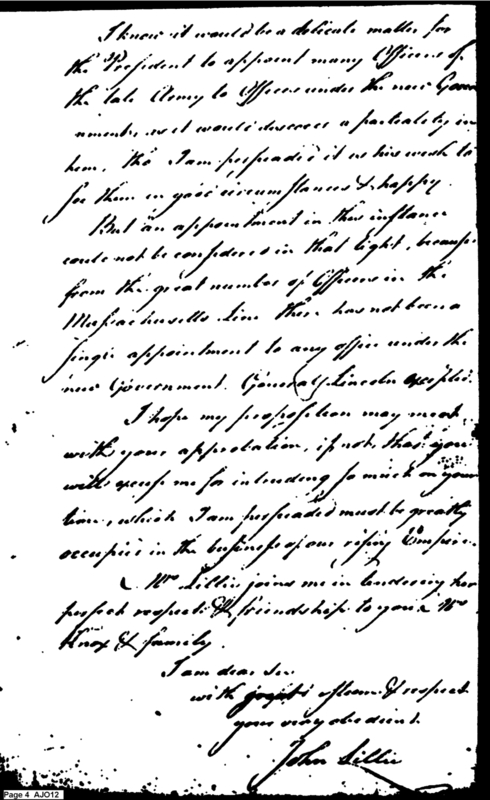 I know it would be a delicate matter for
the President to appoint many Officers of
the late Army to Offices under the new Govern
nment, as it would discover a partiality in
him, tho' I am persuaded it is his wish to
see them in good circumstances & happy.
But an appointment in this instance
could not be considered in that light, because
from the great number of Officers in the
Massachusetts Line there has not been a
single appointment to any office under the
new Government. General Lincoln excepted.
I hope my proposition may meet
with your approbation, if not, that you
will excuse me for intruding so much on your
time, which I am persuaded must be greatly
occupied in the business of our rising Empire.
Mrs Lillie joins me in tendering her
perfect respect & friendship to you & Mrs
Knox & family.
I am dear Sir
with great esteem & respect
your very obedient
John Lillie
Page 4 AJO12